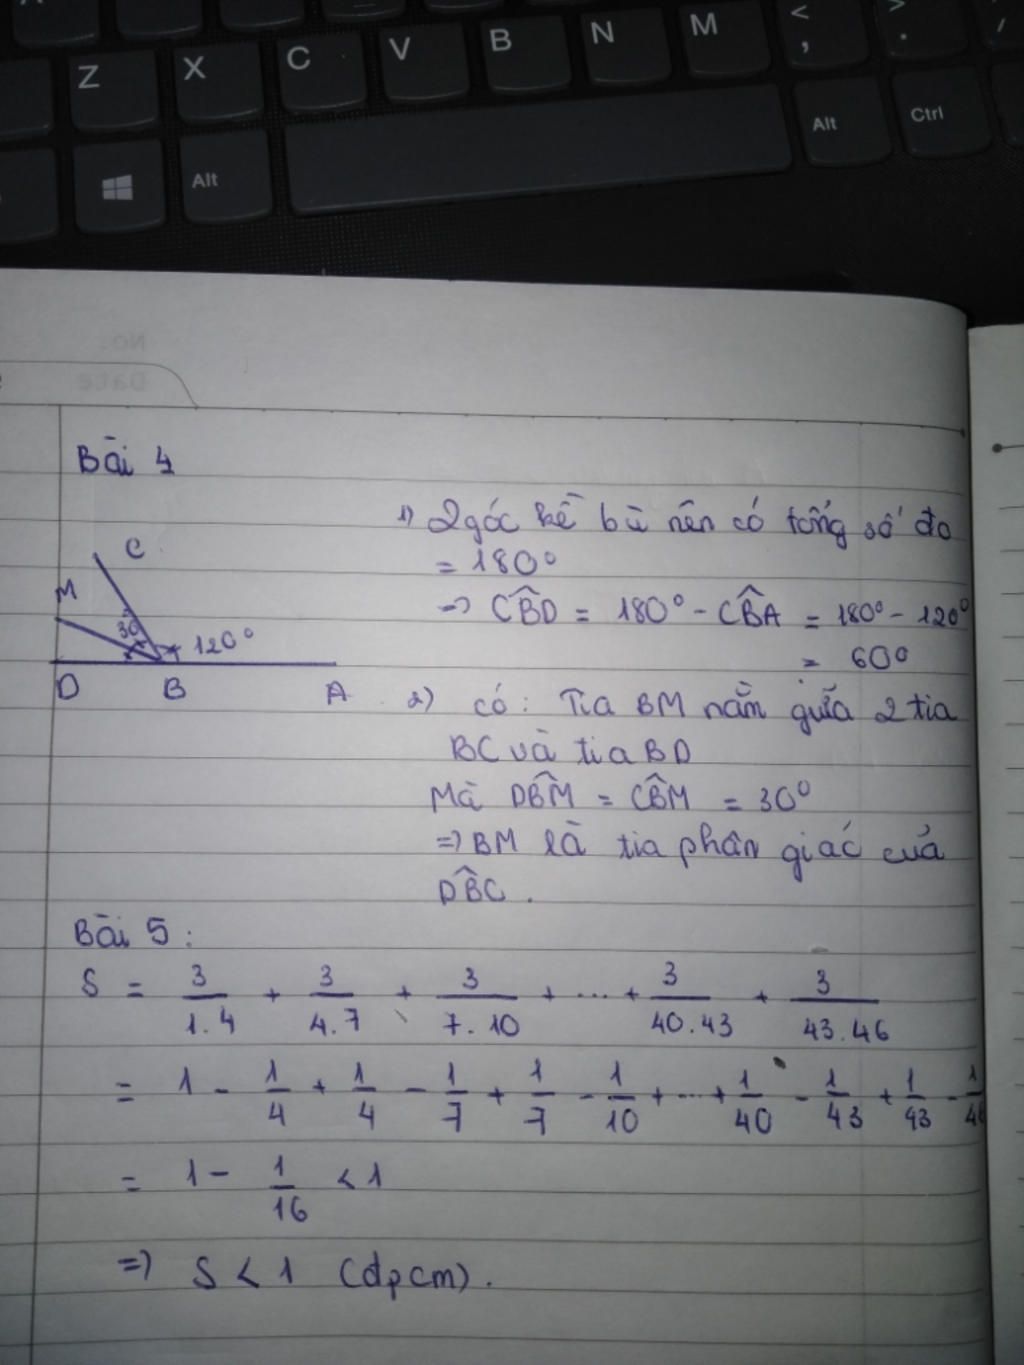 Z X C V B N M < ,
> .
Alt Alt Ctrl
No.
Date
Bài 4
C
M
30
120°
D B A
1) 2 góc kề bù nên có tổng số đo
= 180°
=> CB̂D = 180° - CB̂A = 180° - 120°
= 60°
2) có: Tia BM nằm giữa 2 tia
BC và tia BD
Mà DB̂M = CB̂M = 30°
=> BM là tia phân giác của
DB̂C.
Bài 5:
S = 3/1.4 + 3/4.7 + 3/7.10 + ... + 3/40.43 + 3/43.46
= 1 - 1/4 + 1/4 - 1/7 + 1/7 - 1/10 + ... + 1/40 - 1/43 + 1/43 - 1/46
= 1 - 1/16 < 1
=> S < 1 (đpcm).